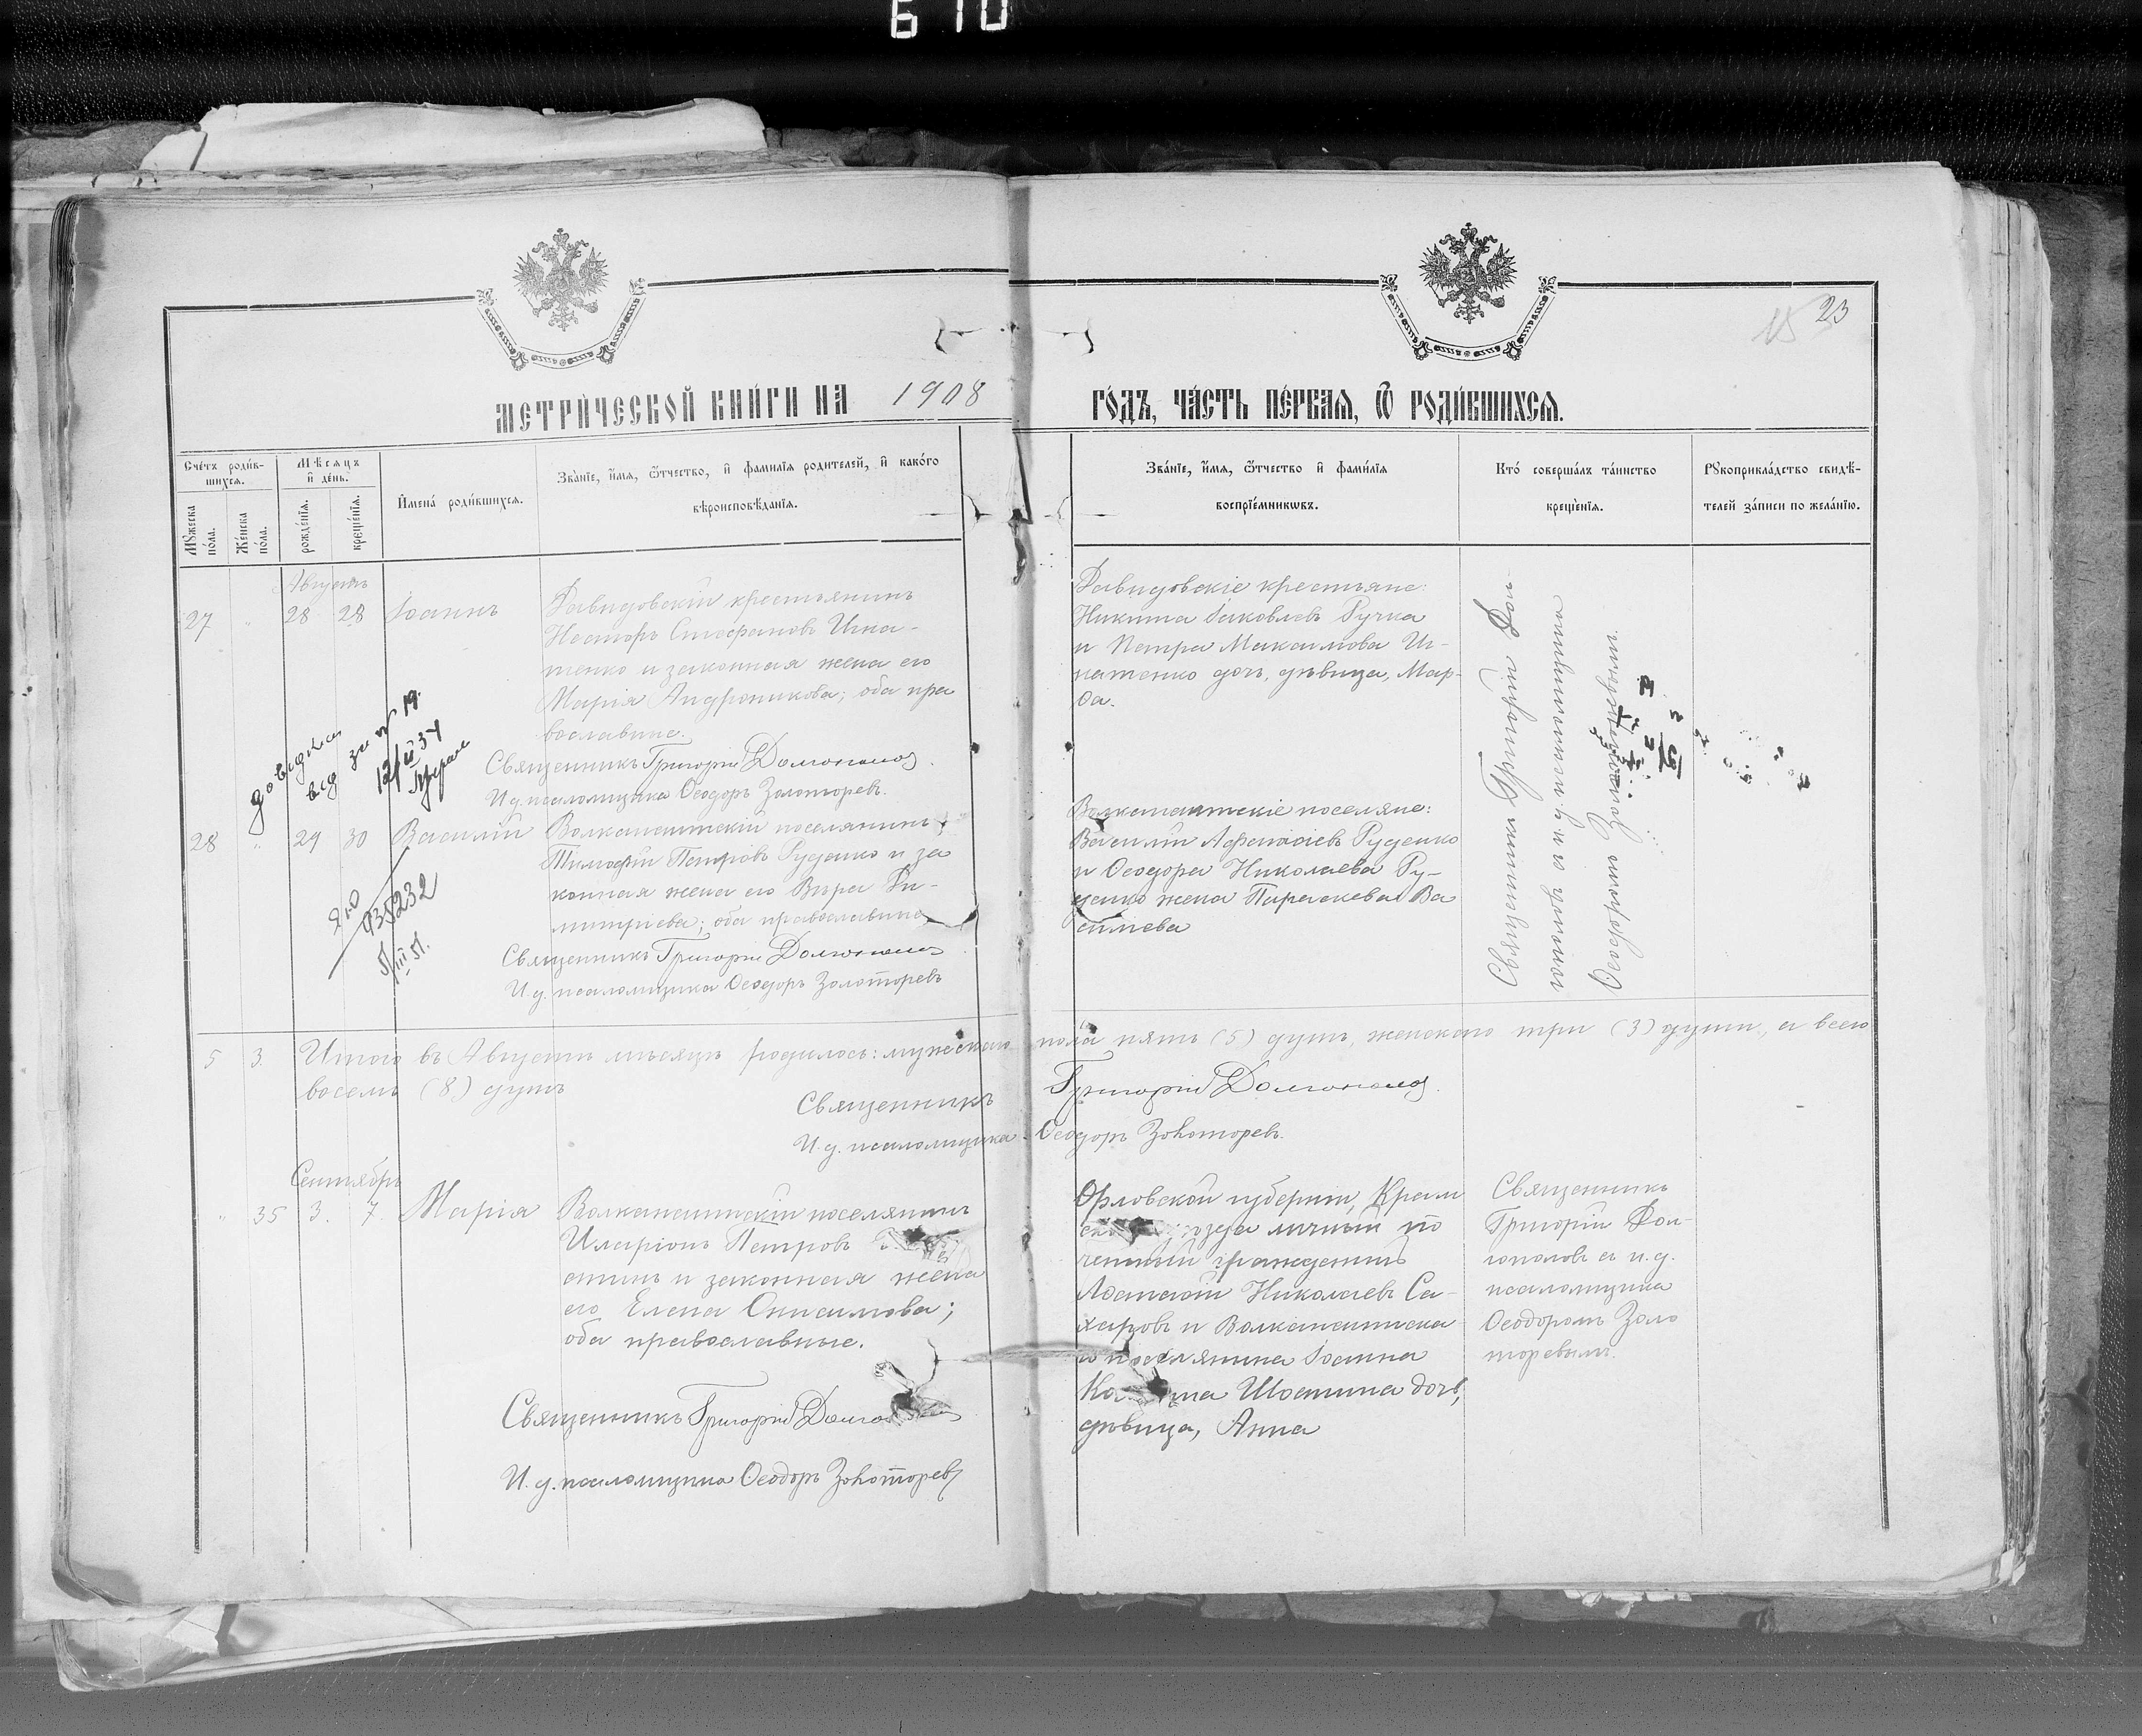 610
23
15
МЕТРИ́ЧЕСКОЙ КНИ́ГИ НА 1908 ГО́ДЪ, ЧА́СТЬ ПЕ́РВАЯ, Ѿ РОДИ́ВШИХСЯ.
Сче́тъ роди́в-
шихся.
Мѣсяцъ
и де́нь.
Имена́ роди́вшихся.
Зва́нїе, и́мя, ѻ́тчество, и фами́лїя роди́телей, и како́го
вѣроисповѣ́данїя.
Му́жеска
по́ла.
Же́нска
по́ла.
рожде́нїя.
креще́нїя.
Зва́нїе, и́мя, ѻ́тчество и фами́лїя
воспрїе́мникѡвъ.
Кто́ соверша́лъ та́инство
креще́нїя.
Рукоприкла́дство свидѣ́-
телей за́писи по жела́нїю.
Августъ
27 " 28 28 Іоаннъ
Давидовскій крестьянинъ
Несторъ Стефановъ Игна-
тенко и законная жена его
Марія Андроникова; оба пра
вославные.
Священникъ Григорій Долгополов
И. д. псаломщика Ѳеодоръ Золоторевъ.
Давидовскіе крестьяне:
Никита Іаковлевъ Ручка
и Петра Максимова Иг-
натенко дочь, дѣвица, Мар-
ѳа.
Священникъ Григорій Дол-
гополовъ с и. д. псаломщика
Ѳеодоромъ Золоторевымъ.
28 " 29 30 Василій
Волканештскій поселянинъ
Тимофѣй Петровъ Руденко и за
конная жена его Вѣра Ди-
митріева; оба православные
Священникъ Григорій Долгополов
И. д. псаломщика Ѳеодоръ Золоторевъ
Волканештскіе поселяне:
Василій Афанасіевъ Руденко
и Ѳеодора Николаева Ру-
денко жена Параскева Ва
силіева
935232
5 3 Итого въ Августѣ мѣсяцѣ родилось: мужескаго пола пять (5) душъ, женскаго три (3) души, а всего
восемь (8) душъ
Священникъ Григорій Долгополов.
И. д. псаломщика Ѳеодоръ Золоторевъ.
Сентябрь
" 35 3. 7. Марія
Волканештскій поселянинъ
Иларіонъ Петровъ
и законная жена
его Елена Онисимова;
оба православные.
Священникъ Григорій
И. д. псаломщика Ѳеодоръ Золоторевъ
Орловской губерніи,
личный по
четный гражданинъ
Николаевъ Са-
харовъ и Волканештска
го поселянина Іоанна
дочь,
дѣвица, Анна
Священникъ
Григорій Дол-
гополовъ с и. д.
псаломщика
Ѳеодоромъ Золо
торевымъ.